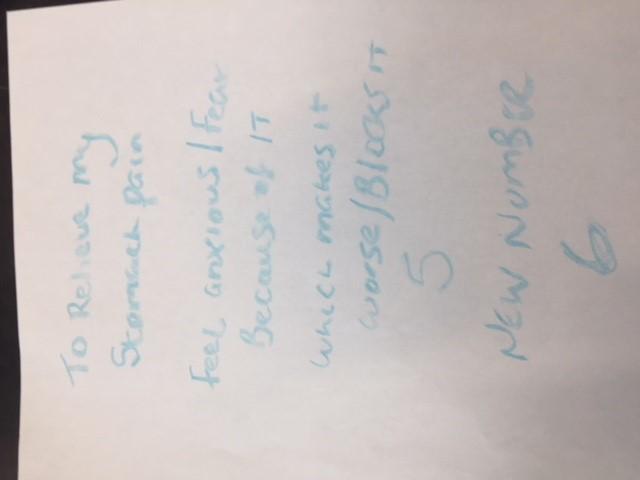 To Relieve my
Stomach pain
feel anxious/fear
Because of IT
which makes it
worse/Blocks IT
5
NEW NUMBER
6